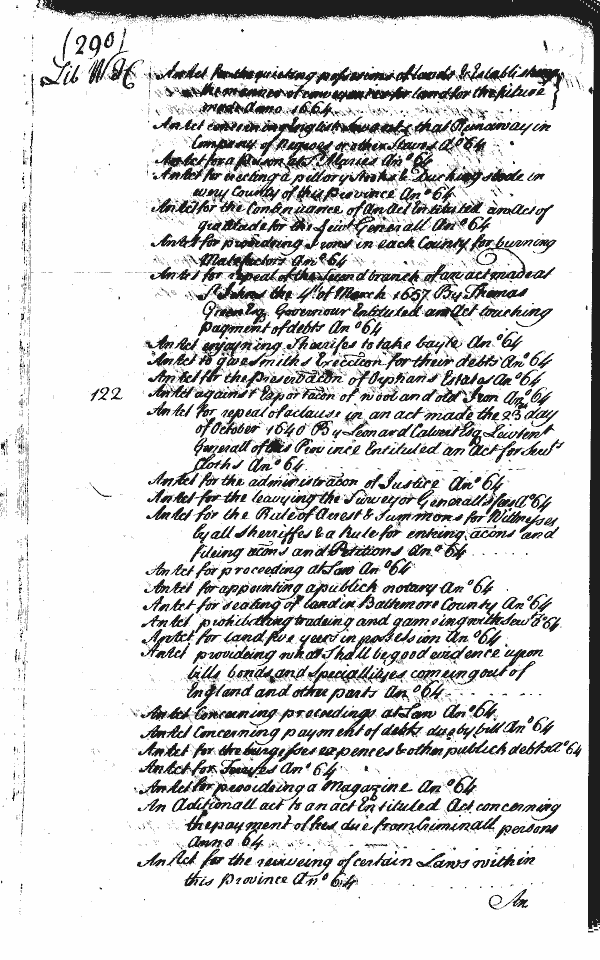 (290)
Lib W H
An Act for the quieting possessions of Lands & Establishing
the manner of conveyances for land for the future
made Anno 1664
An Act concerning English Servants that Runaway in
Company of Negroes or other Slaves Aº 64
An Act for a prison att St Maries Anº 64
An Act for erecting a pillory Stocks & Ducking stoole in
every County of this province Anº 64
An Act for the Continuance of An Act Entituled an Act of
gratitude for the Leiut Generall Anº 64
An Act for provideing Irons in each County for burning
Malefactors Anº 64
An Act for repeal of the Second branch of an act made at
St Johns the 4th of March 1657 By Thomas
Green Esq Governour Entituled an Act touching
payment of debts Anº 64
An Act enjoyning Sherrifes to take bayle Anº 64
An Act to give smiths Execucon for their debts Anº 64
An Act for the Preservacon of Orphans Estates Anº 64
122 An Act against Exportacon of wool and old Iron Anº 64
An Act for repeal of a clause in an act made the 23 day
of October 1640 By Leonard Calvert Esq Leivtent
Generall of this Province Entituled an Act for Servts
Cloths Anº 64
An Act for the administracon of Justice Anº 64
An Act for the leavying the Surveyor Generalls fees Aº 64
An Act for the Rule of Arrest & Summons for Wittnesses
by all Sherriffes & a Rule for entring acons and
fileing acons and Petitions Anº 64
An Act for proceeding at Law Anº 64
An Act for appointing a publick notary Anº 64
An Act for seating of land in Baltemore County Anº 64
An Act prohibitting tradeing and gameing with Servts Aº 64
An Act for land five years in possession Anº 64
An Act provideing what shall be good evidence upon
bills bonds and speciallityes comeing out of
England and other parts Anº 64
An Act Concerning proceedings at Law Anº 64
An Act Concerning payment of debts due by bill Anº 64
An Act for the burgesses expences & other publick debts Aº 64
An Act for Anº 64
An Act for provideing a Magazine Anº 64
An Aditionall act to an act Entituled Act concerning
the payment of fees due from Criminall persons
Anno 64
An Act for the reviveing of certain Laws within
this province Anº 64
An